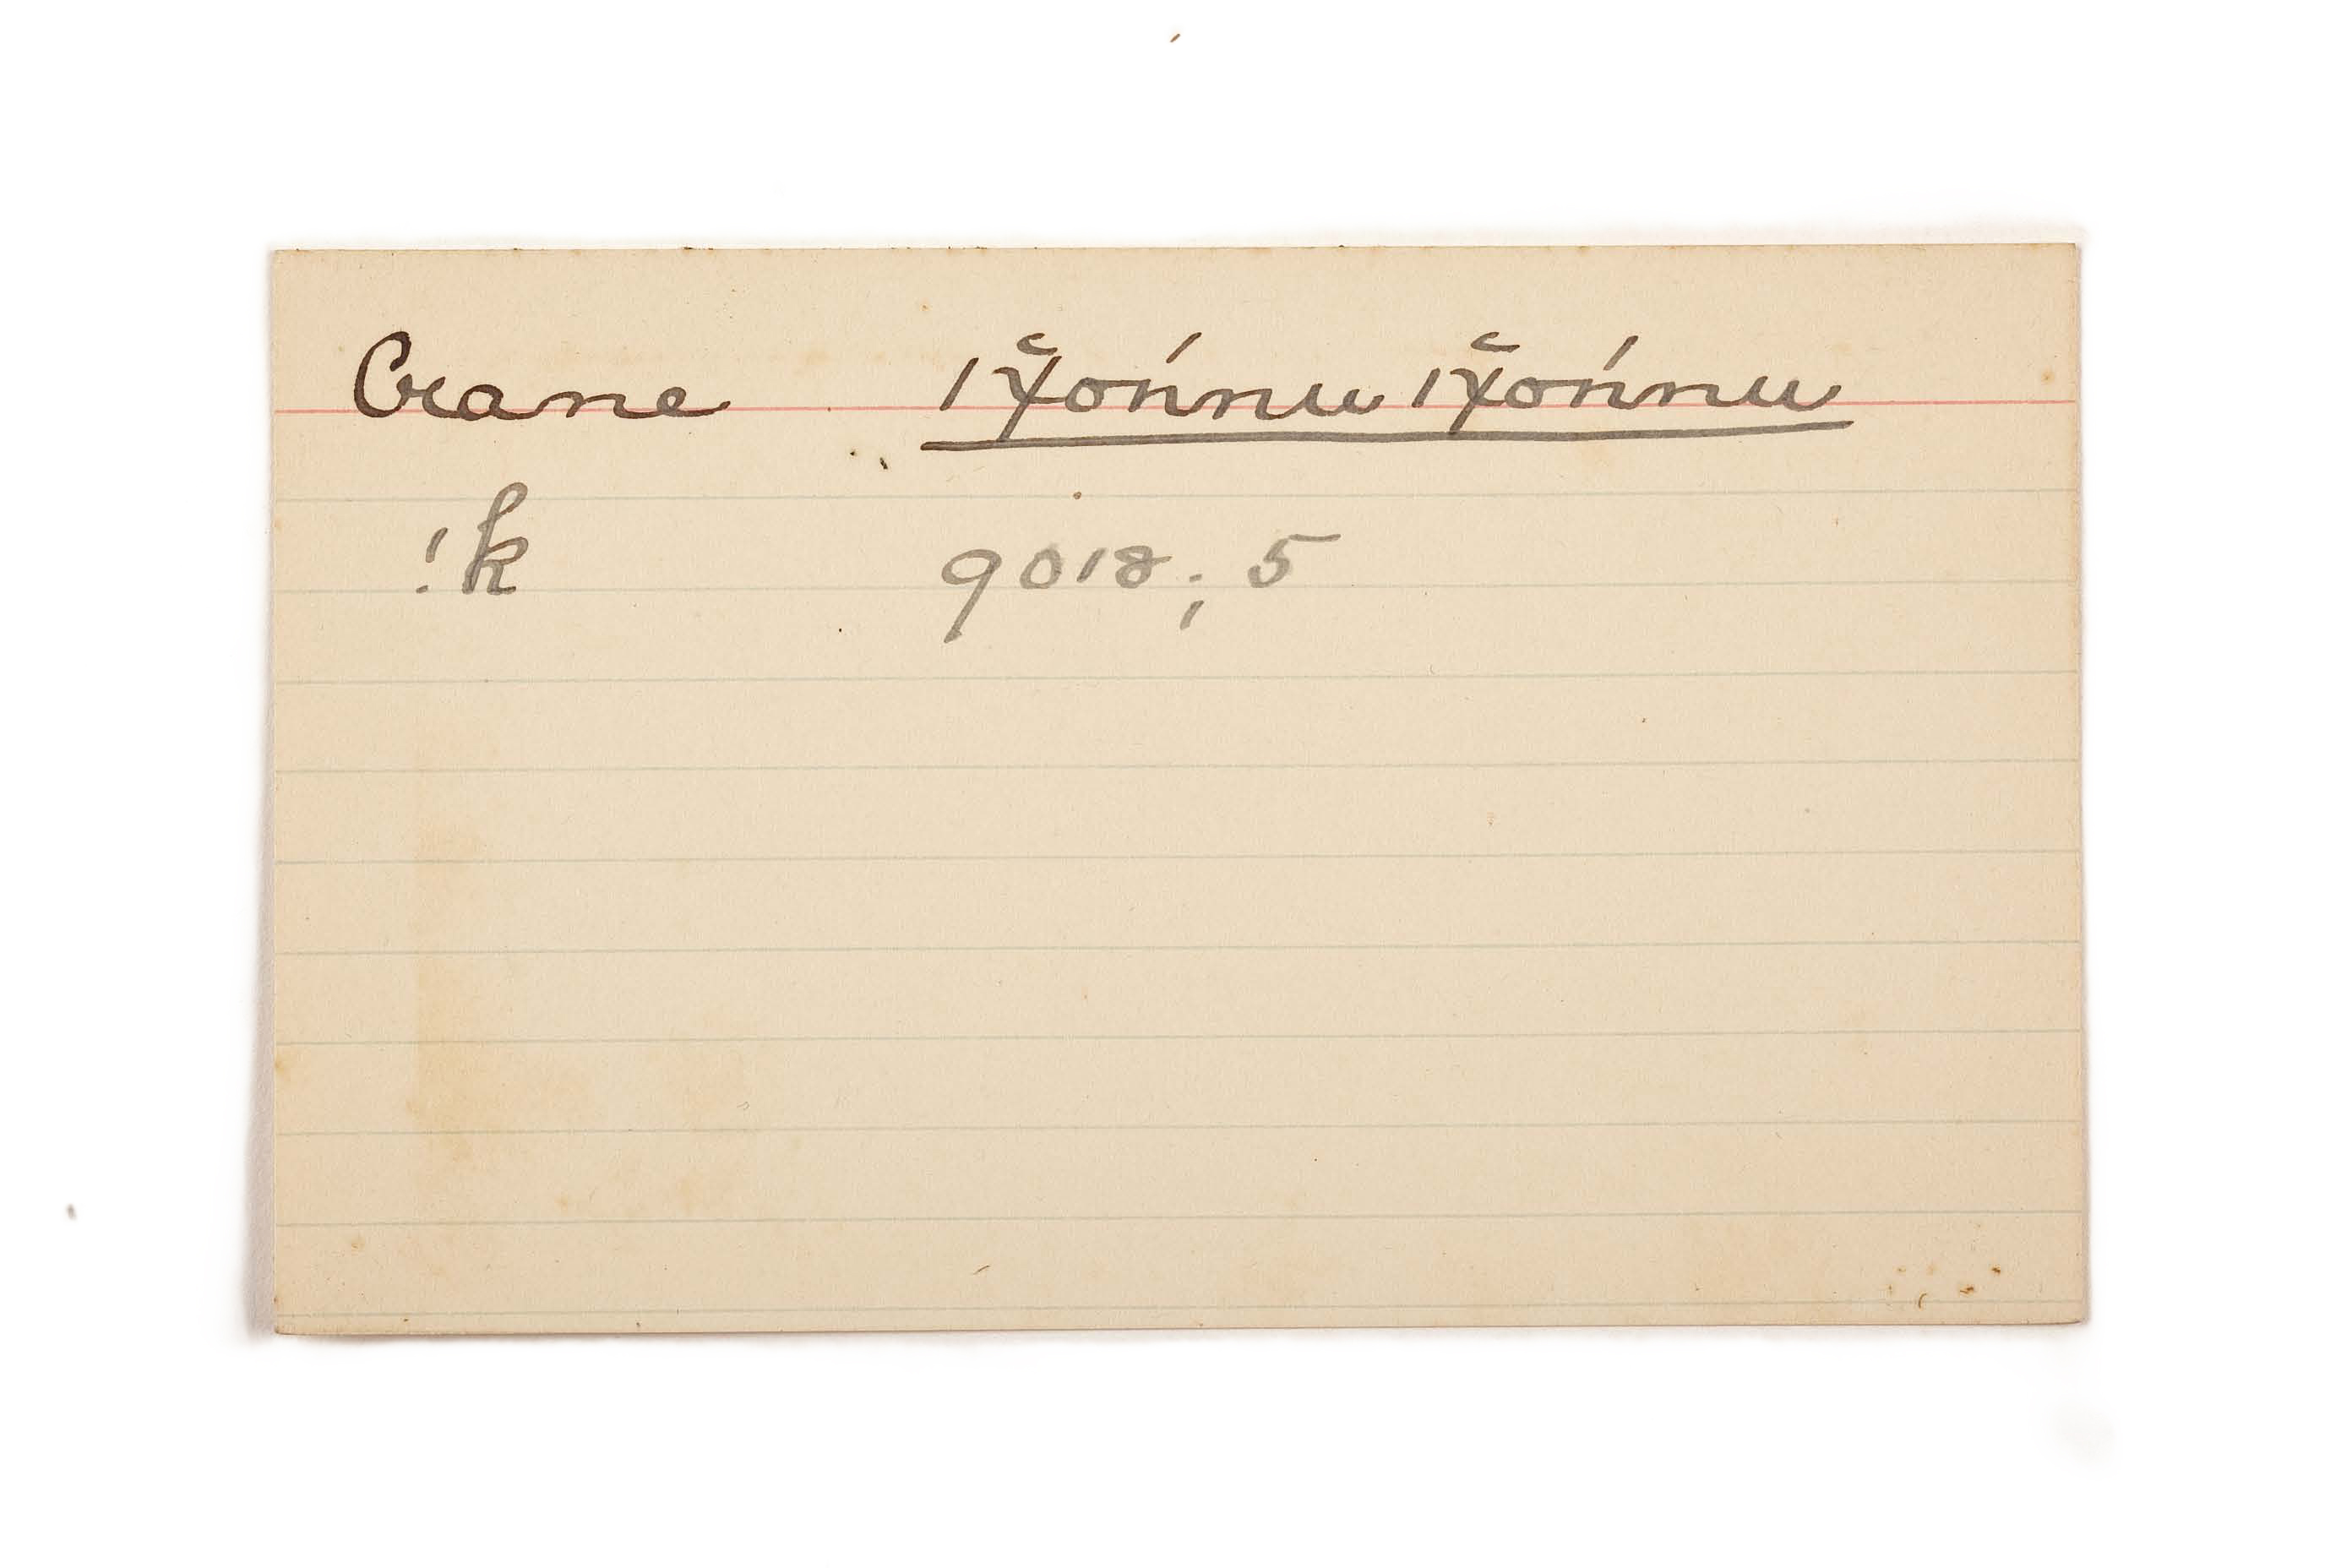 Crane ǀχ̆ońnu ǀχ̆ońnu
!k 9018; 5